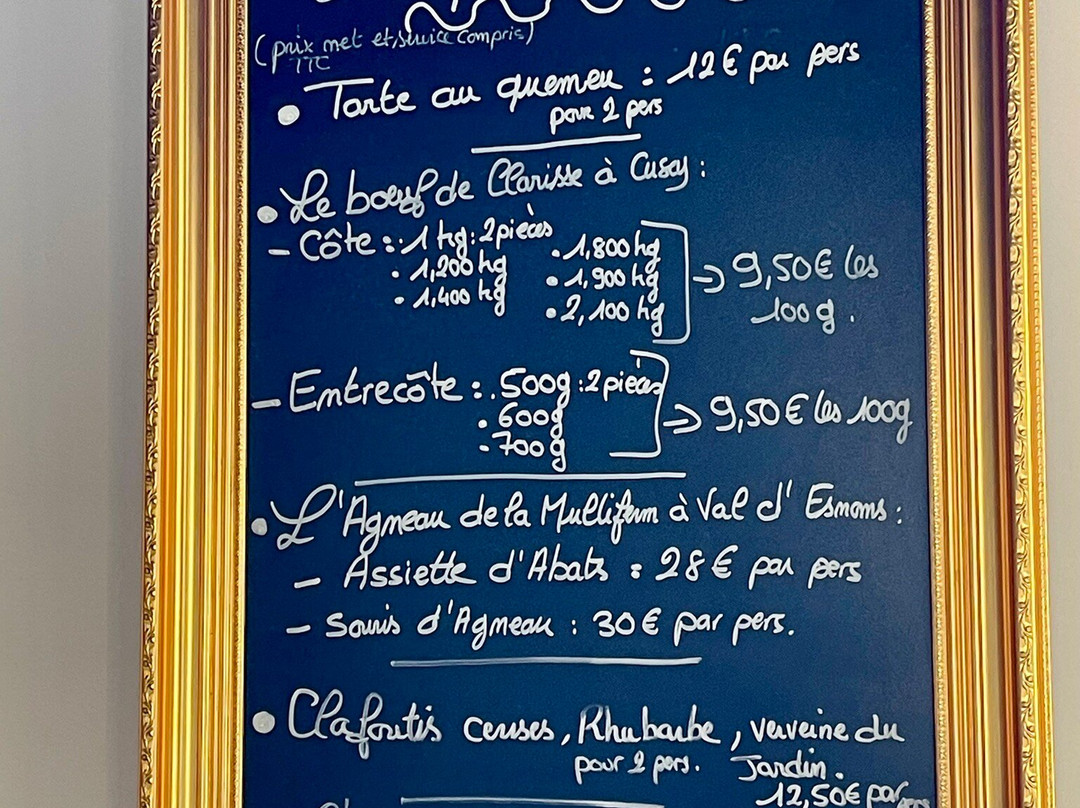 (prix met et service compris)
TTC
• Tarte au quemeu : 12€ par pers
pour 2 pers
• Le bœuf de Clarisse à Cusey :
- Côte : . 1 kg : 2 pièces
. 1,200 kg
. 1,400 kg
. 1,800 kg
. 1,900 kg
. 2,100 kg
→ 9,50€ les
100g.
- Entrecôte : . 500g : 2 pièces
. 600g
. 700g
→ 9,50€ les 100g
• L'Agneau de la Mullifarm à Val d'Esnoms :
- Assiette d'Abats : 28€ par pers
- Souris d'Agneau : 30€ par pers.
• Clafoutis cerises, Rhubarbe, verveine du
Jardin.
pour 2 pers.
12,50€ par pers